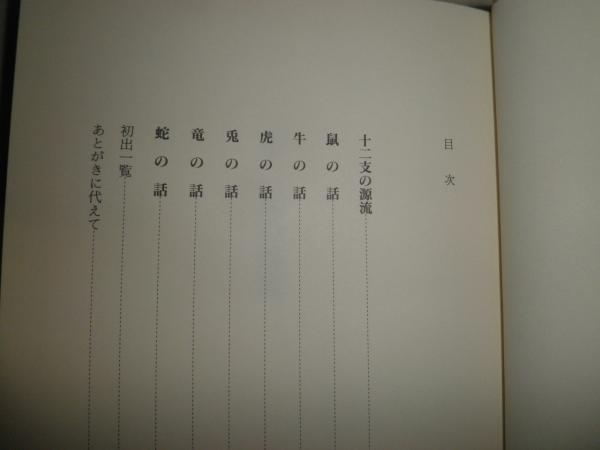 目次
十二支の源流
鼠の話
牛の話
虎の話
兎の話
竜の話
蛇の話
初出一覧
あとがきに代えて